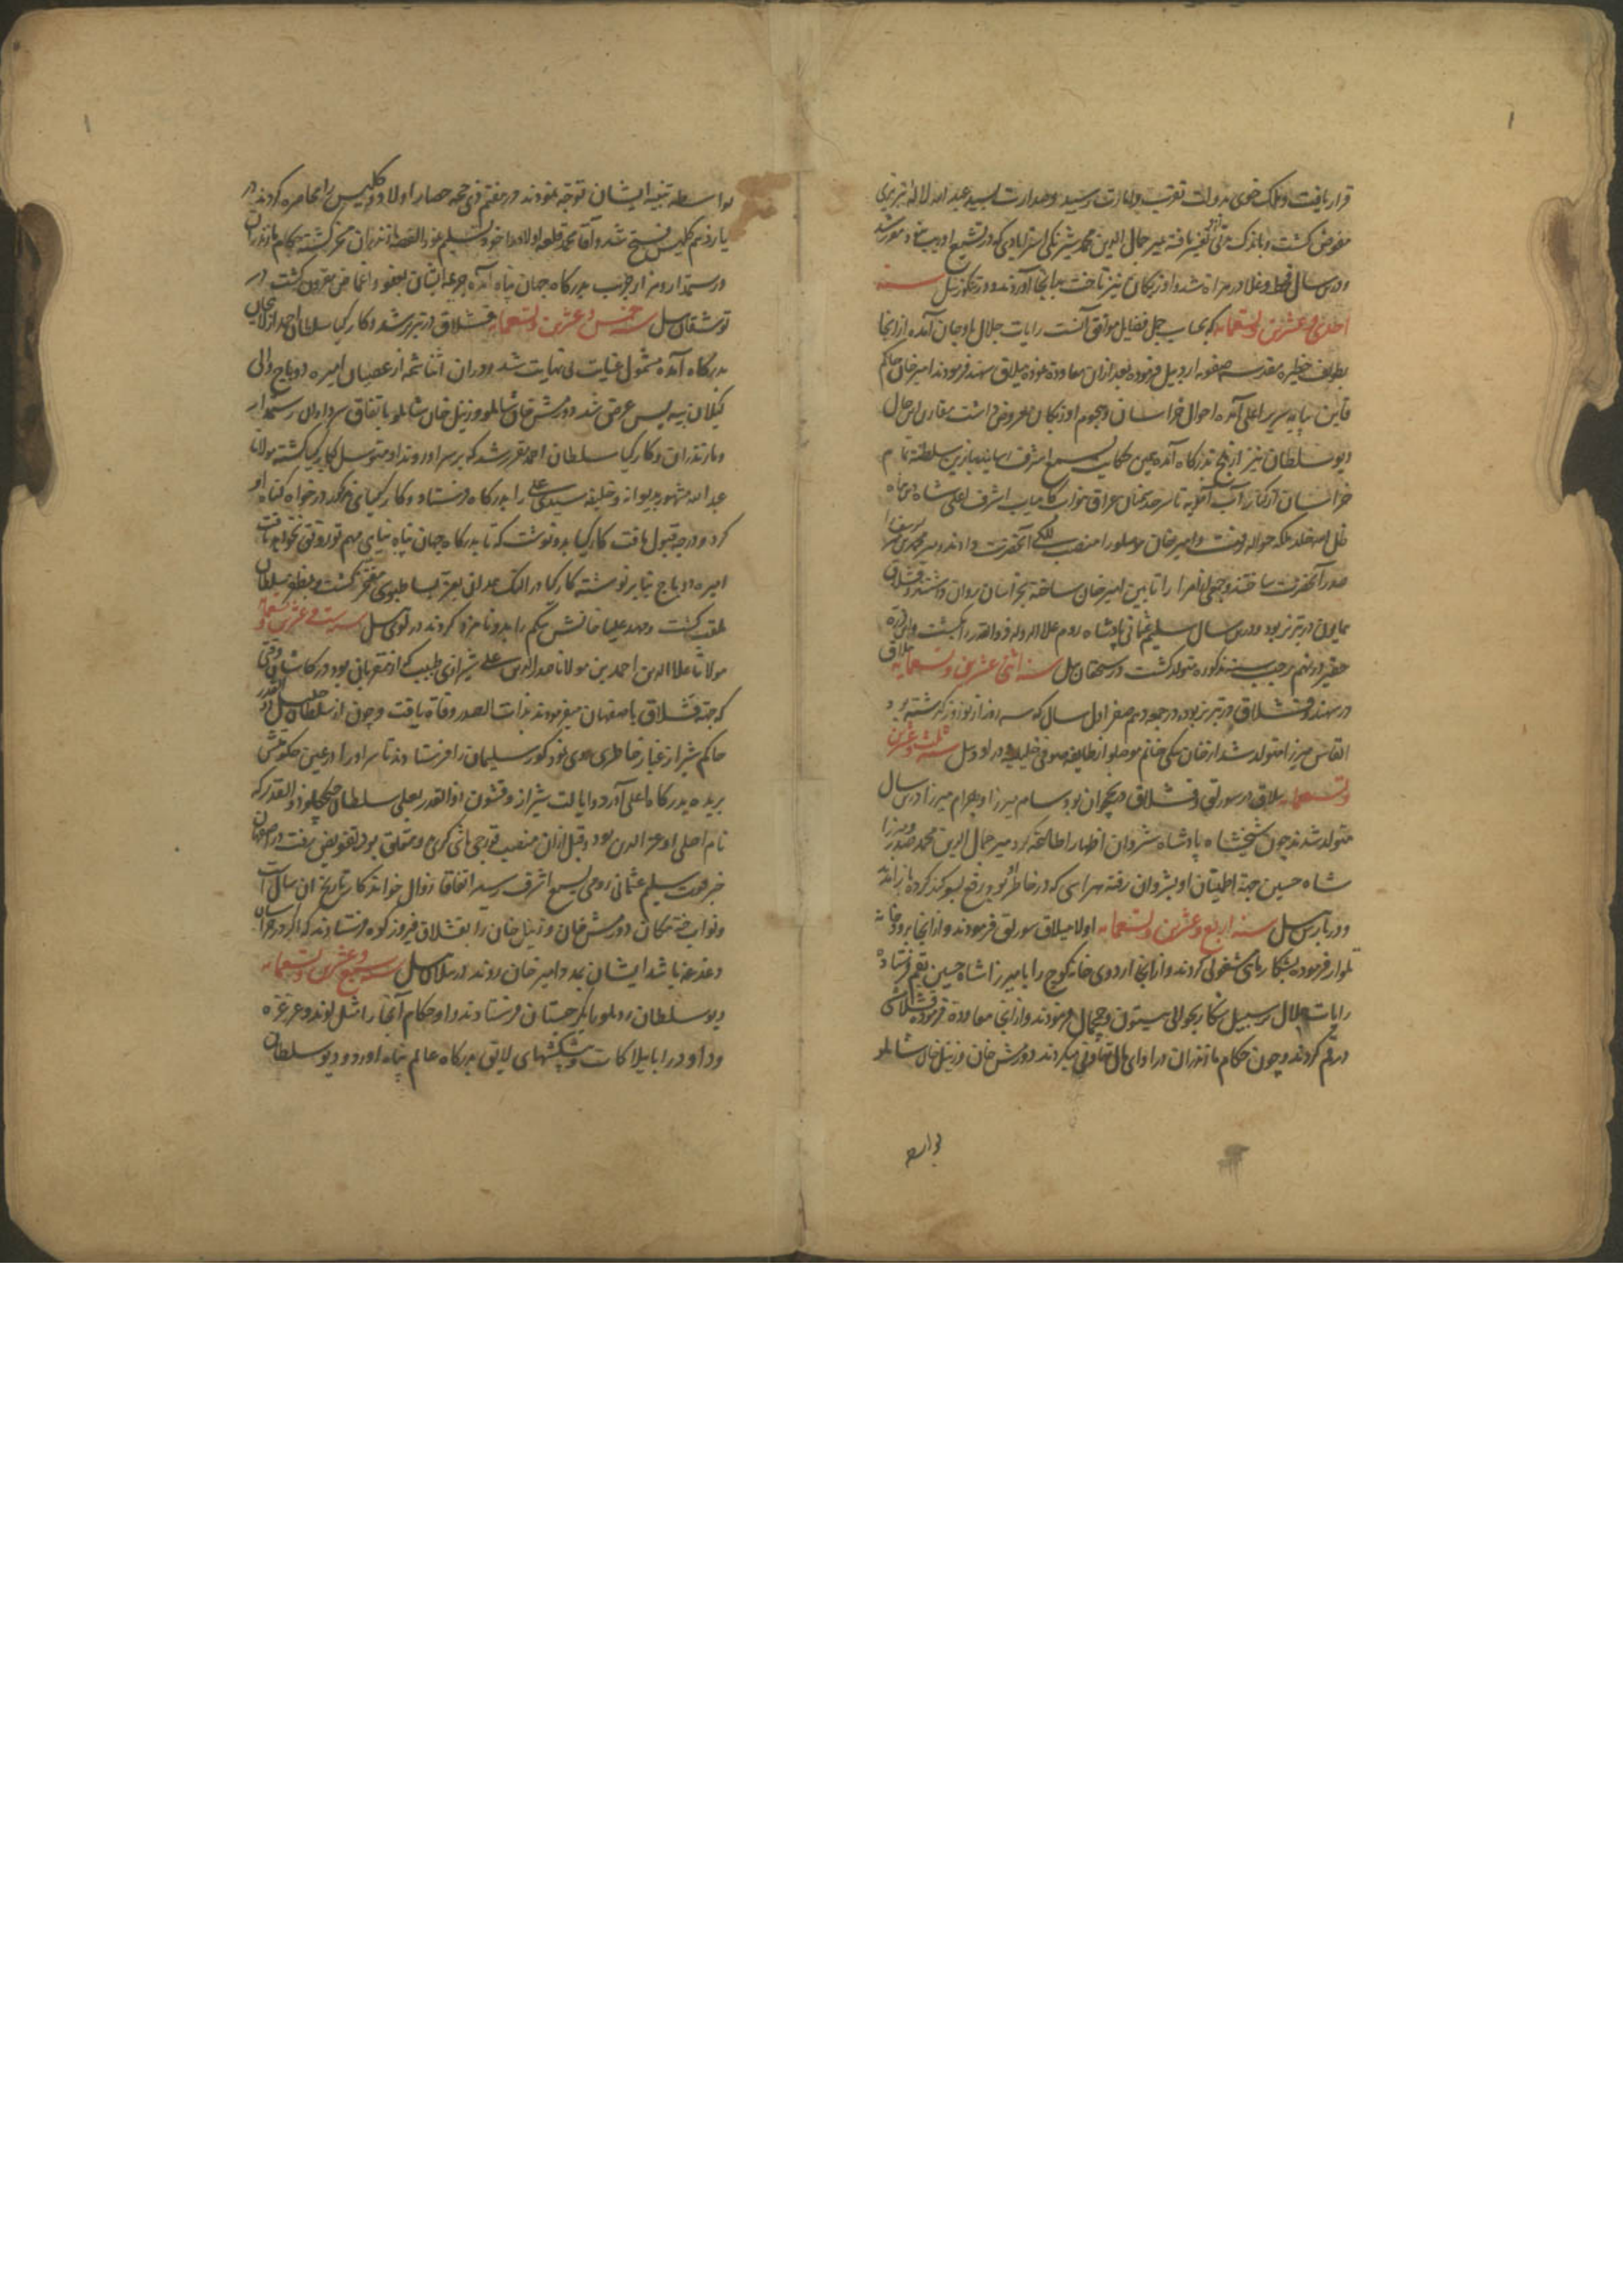 قرار یافت و ملک خوی بدولت تقرب و امارت رسید و صدارت بسید عبد الله لاله تبریزی
مفوض گشت و باندک مدتی تغیر یافته میر جمال الدین محمد شیرنکی استرابادی که در تشیع
و درین سال قحط و غلا در هراة شد و اوزبکان نیز تاخت بدانجا آوردند و در تنکوزئیل سنه
احدی و عشرین و تسعمایه که بحساب جمل فضایل موافق آنست رایات جلال باوجان آمده از آنجا
بطواف حظیره مقدسه صفویه اردبیل فرموده بعد از آن معاودة نموده ییلاق سهند فرمودند امیر خان حاکم
قاین بپایه سریر اعلی آمده احوال خراسان و هجوم اوزبکان معروض داشت مقارن این حال
دیو سلطان نیز از بلخ بدرگاه آمده همین حکایت بسمع اشرف رسانید بنابرین سلطنة تمام
خراسان از کنار آب آمویه تا سرحد سمنان عراق بنواب کامیاب اشرف اعلی شاه دین پناه
ظل الله خلد ملکه حواله نمود و امیر خان موصلو را منصب للکی آنحضرت دادند و میر محمد میر یوسف را
صدر آنحضرت ساختند و جمعی از امرا را تابین امیر خان ساخته بخراسان روان داشتند و قشلاق
همایون در تبریز بود و درین سال سلیم عثمانی پادشاه روم علاء الدوله ذو القدر را بکشت
حقیر در نهم رجب سنه مذکوره متولد گشت در سیچقان ئیل سنه اثنی عشرین و تسعمایه ییلاق
در سهند و قشلاق در تبریز بود در جمعه دهم صفر اول سال که سه روز از نوروز گذشته بود
القاس میرزا متولد شد از خان بیکی خانم موصلو از طایفه صوفی خلیل و در اودئیل سنه ثلث و عشرین
و تسعمایه ییلاق در سورلق و قشلاق در نخجوان بود و سام میرزا و بهرام میرزا درین سال
متولد شدند چون شیخشاه پادشاه شروان اظهار اطاعة کرد میر جمال الدین محمد صدر و میرزا
شاه حسین جهة اطمینان او بشروان رفته هراسی که در خاطر او بود رفع بسوکند کرده باز آمدند
و در بارس ئیل سنه اربع و عشرین و تسعمایه اولا ییلاق سورلق فرمودند و از آنجا برودخانه
تلوار فرموده بشکار ماهی مشغولی کردند و از آنجا اردوی خانه کوچ را با میرزا شاه حسین بقم فرستاده
رایات جلال بر سبیل شکار بحوالی بیستون و چمچال فرمودند و از آنجا معاودة فرموده قشلاق
در قم کردند و چون حکام مازندران در ادای مال تهاونی میکردند دورمش خان و زینل خان شاملو
بواسطه
بواسطه تنبیه ایشان توجه نمودند در هفتم ذی حجه حصار اولاد و کلیس را محاصره کردند در
یازدهم کلیس فتح شد و آقا محمد قلعه اولاد را خود تسلیم نمود القصه مازندران مسخر گشته حکام مازندران
و رستمدار و هزار جریب بدرگاه جهان پناه آمده جریمه ایشان بعفو و اغماض مقرون گشت در
توشقان ئیل سنه خمس و عشرین و تسعمایه قشلاق در تبریز شد و کار کیا سلطان احمد از لاهیجان
بدرگاه آمده مشمول عنایت بی نهایت شد و در آن اثنا شمه از عصیان امیره دوباج والی
کیلان بیه پس عرض شد دورمش خان شاملو و زینل خان شاملو باتفاق سرداران رستمدار
و مازندران و کار کیا سلطان احمد مقرر شد که بر سر او روند او متوسل بکار کیا گشته مولانا
عبد الله مشهور بدیوانه و خلیفه سیدی علی را بدرگاه فرستاد و کار کیای مذکور درخواه گناه او
کرد و درجه قبول یافت کار کیا بدو نوشت که تا بدرگاه جهان پناه نیایی مهم تو رونقی نخواهد یافت
امیره دوباج بنابر نوشته کار کیا در النک همدان بعز بساط بوسی مفتخر گشت و بمظفر سلطان
ملقب گشت و مهد علیا خانش بیکم را بدو نامزد کردند در لوی ئیل سنه ست و عشرین و تسعمایه
مولانا علاء الدین احمد بن مولانا صدر الدین علی شیرازی طبیب که از مقربان بود در کاشان وقتی
که جهة قشلاق باصفهان میفرمودند بذات الصدر وفاة یافت و چون از سلطان خلیل ذو القدر
حاکم شیراز غبار خاطری روی نمود کور سلیمان را فرستادند تا سر او را در عین حکومتش
بریده بدرگاه اعلی آورد و ایالت شیراز و قشون ذو القدر بعلی سلطان چیچکلو ذو القدر که
نام اصلی او عز الدین بود و قبل از آن منصب قورچی باشی کری و متعلق بود تفویض رفت در اصفهان
خبر موت سلیم عثمانی رومی بسمع اشرف رسید اتفاقا زوال خواندکار تاریخ آن سال است
و نواب خجسته مکان دورمش خان و زینل خان را بقشلاق فیروزکوه فرستادند که اگر در خراسان
دغدغه باشد ایشان بمدد امیر خان روند در ئیلان ئیل سنه سبع و عشرین و تسعمایه
دیو سلطان روملو را بکرجستان فرستادند و او حکام آنجا را مثل لوند و غرغره
و داود را با بیلاکات و پیشکشهای لایق بدرگاه عالم پناه آورد و دیو سلطان